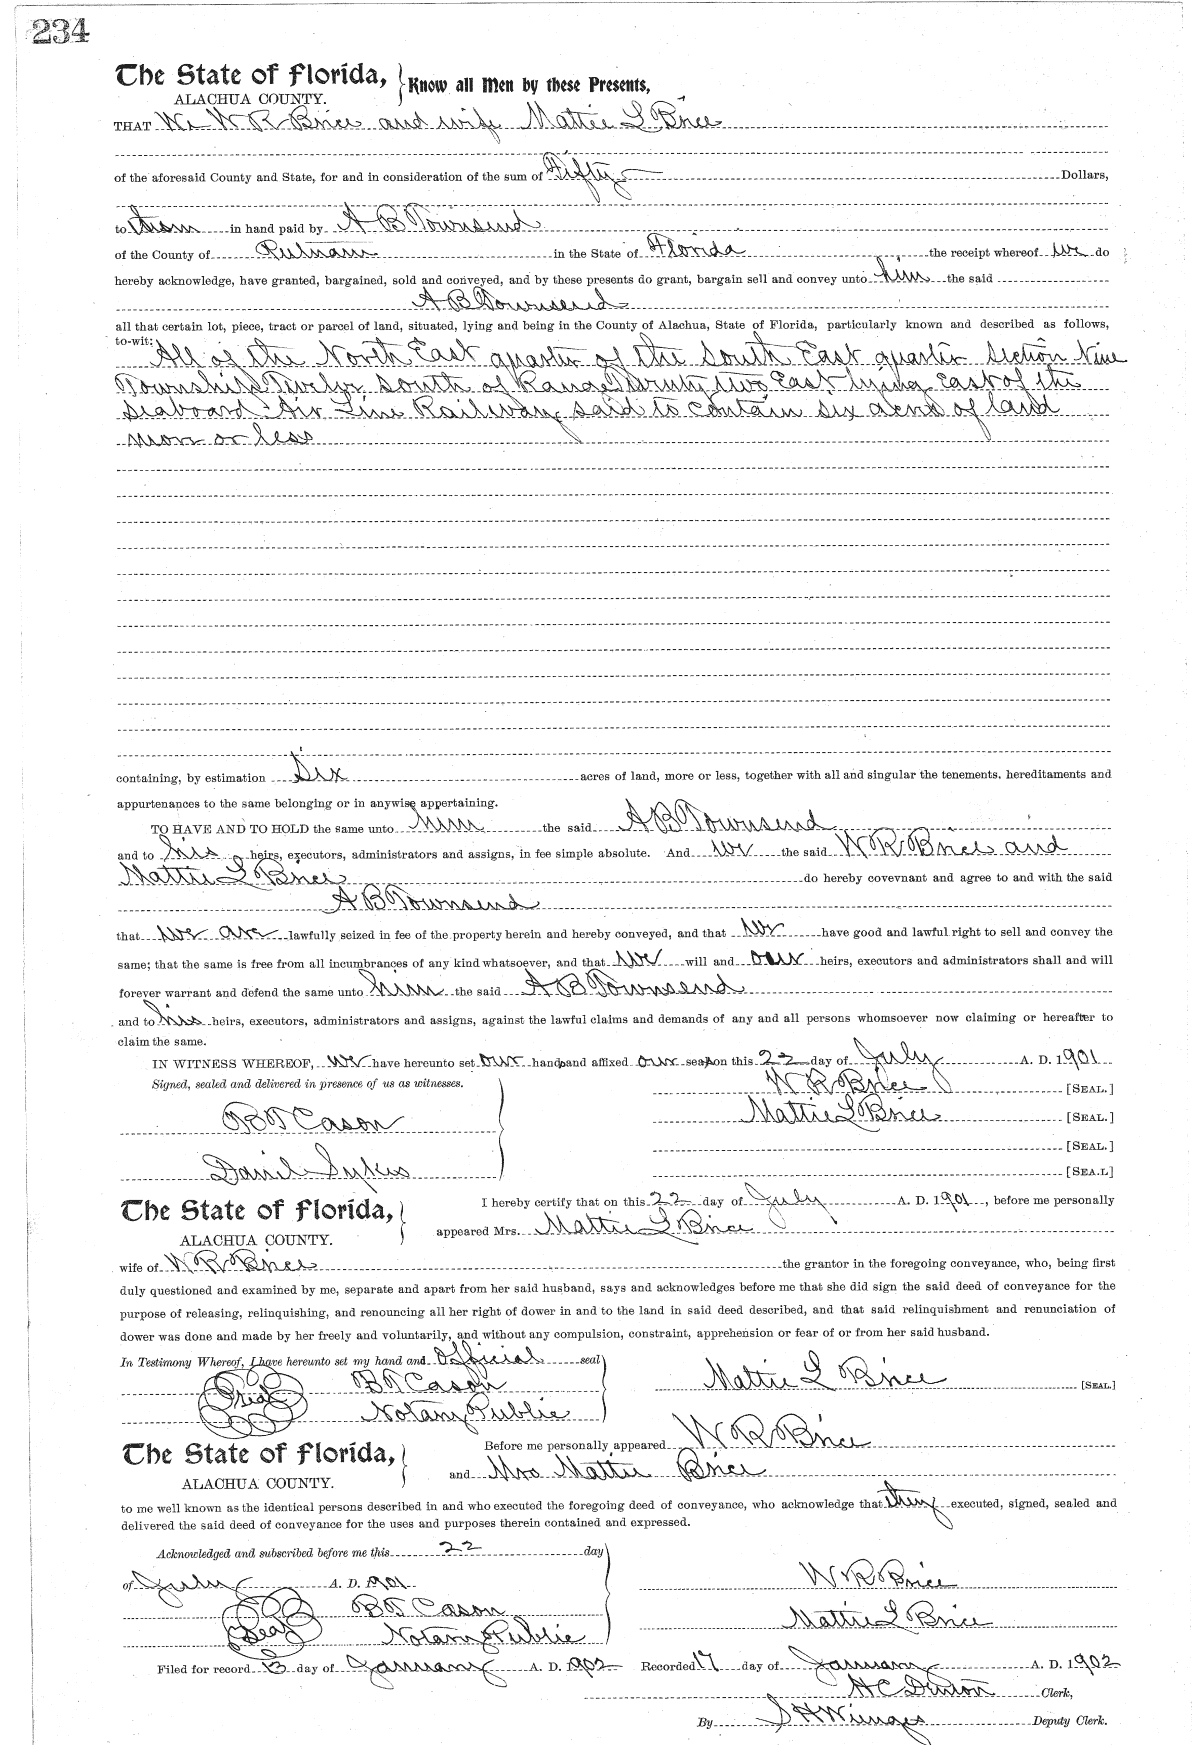 234
The State of Florida, Know all Men by these Presents,
ALACHUA COUNTY.
THAT We W R Brice and wife Mattie L Brice
of the aforesaid County and State, for and in consideration of the sum of Fifty Dollars,
to them in hand paid by A B Townsend
of the County of Putnam in the State of Florida the receipt whereof we do
hereby acknowledge, have granted, bargained, sold and conveyed, and by these presents do grant, bargain sell and convey unto him the said
A B Townsend
all that certain lot, piece, tract or parcel of land, situated, lying and being in the County of Alachua, State of Florida, particularly known and described as follows,
to-wit: All of the North East quarter of the South East quarter Section Nine
Township Twelve South of Range Twenty two East lying East of the
Seaboard Air Line Railway said to contain six acres of land
more or less
containing, by estimation Six acres of land, more or less, together with all and singular the tenements, hereditaments and
appurtenances to the same belonging or in anywise appertaining.
TO HAVE AND TO HOLD the same unto him the said A B Townsend
and to his heirs, executors, administrators and assigns, in fee simple absolute. And we the said W R Brice and
Mattie L Brice do hereby covevnant and agree to and with the said
A B Townsend
that we are lawfully seized in fee of the property herein and hereby conveyed, and that we have good and lawful right to sell and convey the
same; that the same is free from all incumbrances of any kind whatsoever, and that we will and our heirs, executors and administrators shall and will
forever warrant and defend the same unto him the said A B Townsend
and to his heirs, executors, administrators and assigns, against the lawful claims and demands of any and all persons whomsoever now claiming or hereafter to
claim the same.
IN WITNESS WHEREOF, we have hereunto set our hands and affixed our seals on this 22 day of July A. D. 1901
Signed, sealed and delivered in presence of us as witnesses. W R Brice [SEAL.]
B T Cason Mattie L Brice [SEAL.]
[SEAL.]
Daniel Sykes [SEA.L]
The State of Florida, I hereby certify that on this 22 day of July A. D. 1901, before me personally
ALACHUA COUNTY. appeared Mrs. Mattie L Brice
wife of W R Brice the grantor in the foregoing conveyance, who, being first
duly questioned and examined by me, separate and apart from her said husband, says and acknowledges before me that she did sign the said deed of conveyance for the
purpose of releasing, relinquishing, and renouncing all her right of dower in and to the land in said deed described, and that said relinquishment and renunciation of
dower was done and made by her freely and voluntarily, and without any compulsion, constraint, apprehension or fear of or from her said husband.
In Testimony Whereof, I have hereunto set my hand and Official seal
Seal B T Cason Mattie L Brice [SEAL.]
Notary Public
The State of Florida, Before me personally appeared W R Brice
ALACHUA COUNTY. and Mrs Mattie Brice
to me well known as the identical persons described in and who executed the foregoing deed of conveyance, who acknowledge that they executed, signed, sealed and
delivered the said deed of conveyance for the uses and purposes therein contained and expressed.
Acknowledged and subscribed before me this 22 day
of July A. D. 1901 W R Brice
B T Cason Mattie L Brice
Seal Notary Public
Filed for record 13 day of January A. D. 1902 Recorded 17 day of January A. D. 1902
H C Denton Clerk,
By S H Wienges Deputy Clerk.